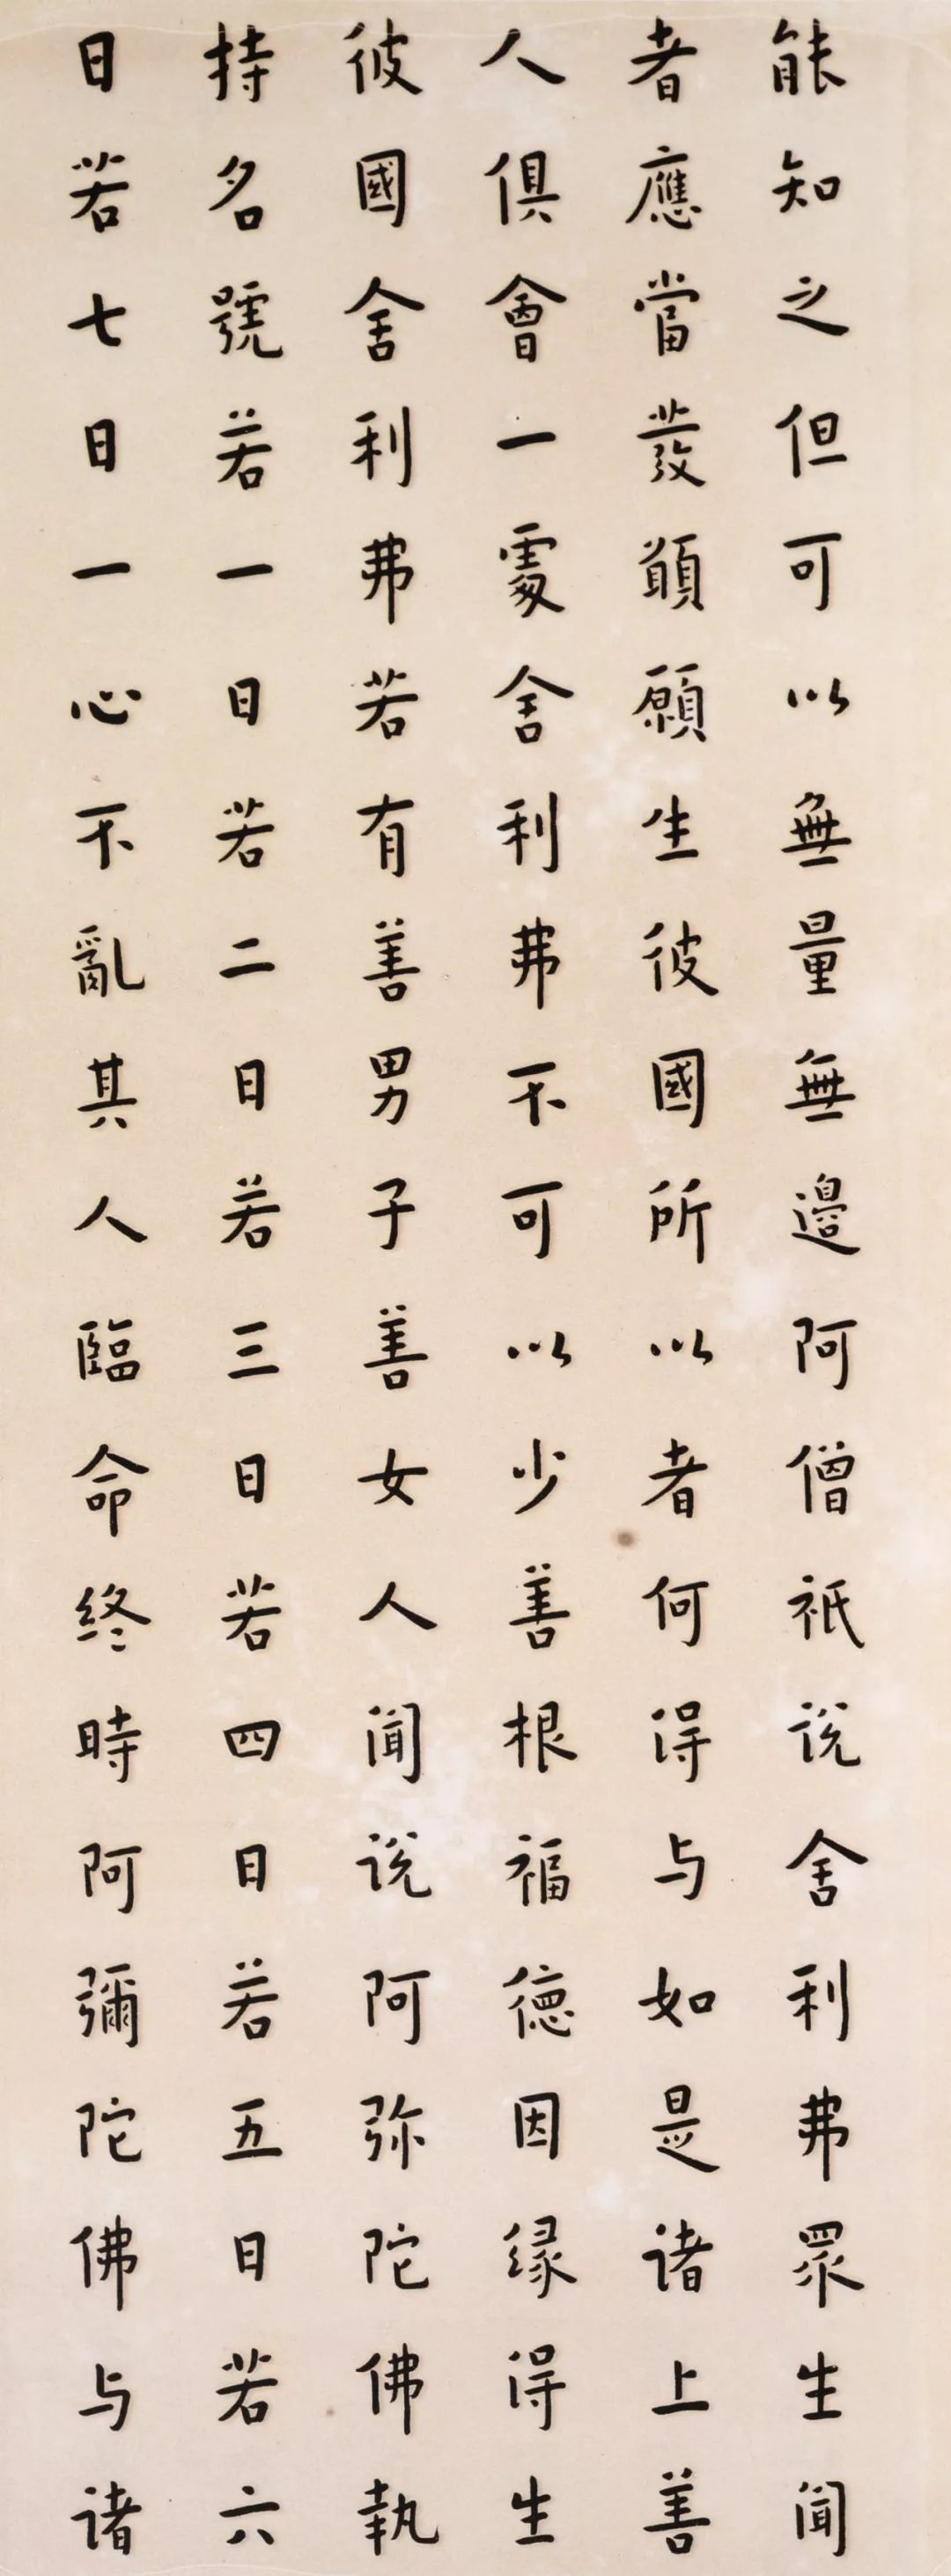 能知之但可以無量無邊阿僧祇说舍利弗眾生聞
者應當發頭願生彼國所以者何得与如是诸上善
人俱會一處舍利弗不可以少善根福德因缘得生
彼國舍利弗若有善男子善女人聞说阿弥陀佛執
持名號若一日若二日若三日若四日若五日若六
日若七日一心不亂其人臨命终時阿彌陀佛与诸